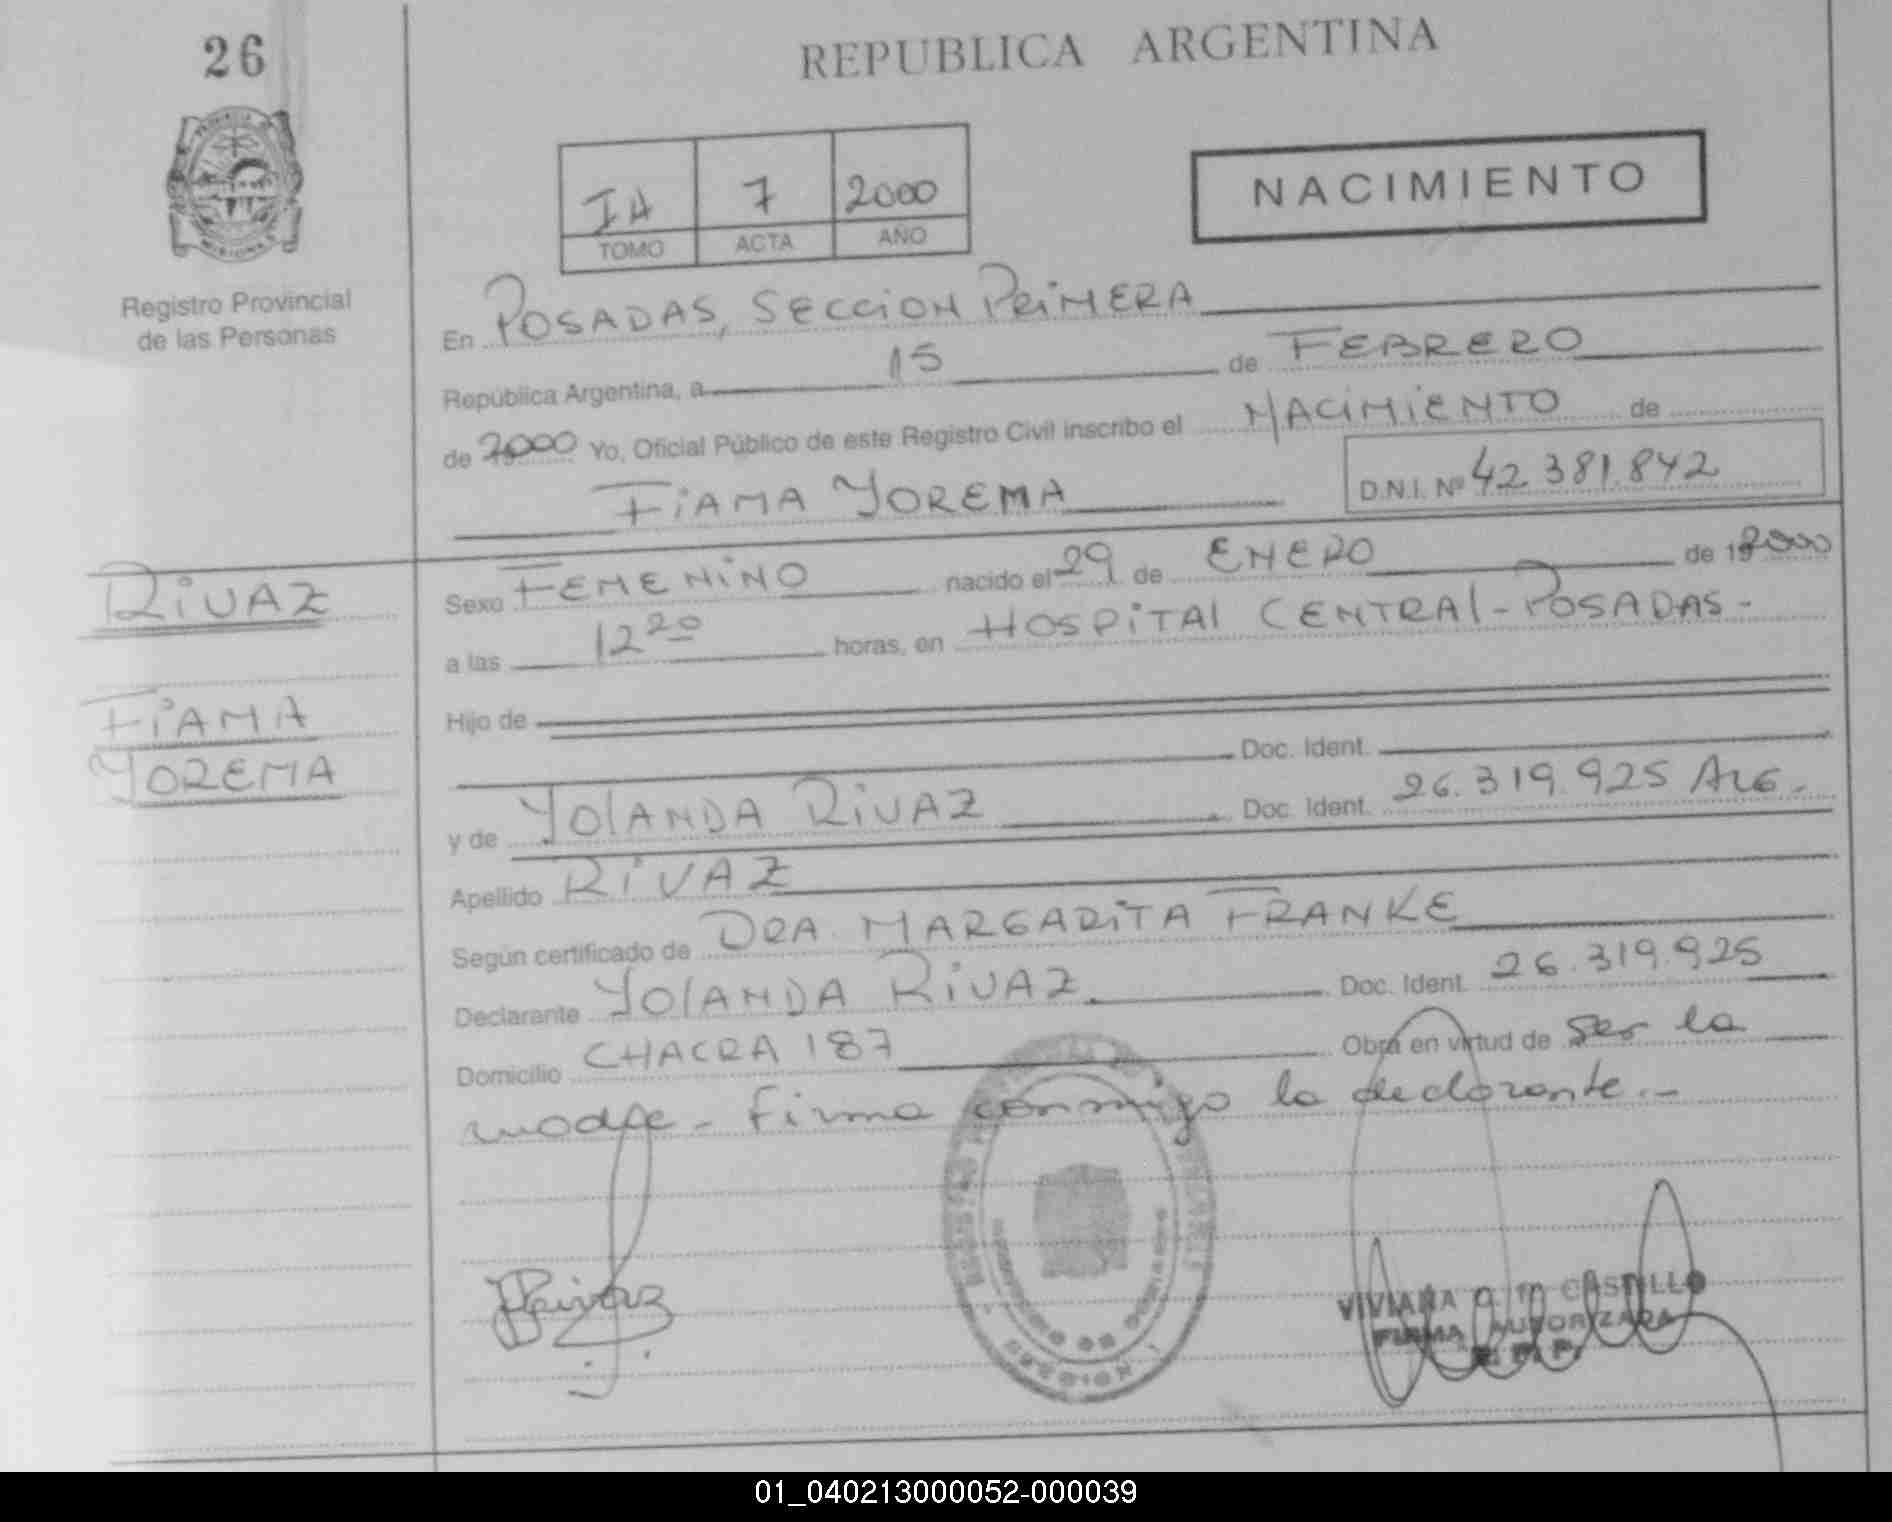 26
REPUBLICA ARGENTINA
IH 7 2000
TOMO ACTA AÑO
NACIMIENTO
Registro Provincial
de las Personas
En POSADAS, SECCION PRIMERA
República Argentina, a 15 de FEBRERO
de 2000 Yo, Oficial Público de este Registro Civil inscribo el NACIMIENTO de
FIAMA YOREMA D.N.I. Nº 42.381.842
RIVAZ
FIAMA
YOREMA
Sexo FEMENINO nacido el 29 de ENERO de 2000
a las 12 20 horas, en HOSPITAL CENTRAL - POSADAS -
Hijo de
Doc. Ident.
y de YOLANDA RIVAZ Doc. Ident. 26.319.925 ARG.
Apellido RIVAZ
Según certificado de DRA. MARGARITA FRANKE
Declarante YOLANDA RIVAZ Doc. Ident. 26.319.925
Domicilio CHACRA 187 Obra en virtud de ser la
madre - Firma conmigo la declarante.-
Rivaz
VIVIANA CASTILLO
FIRMA AUTORIZADA
01_040213000052-000039